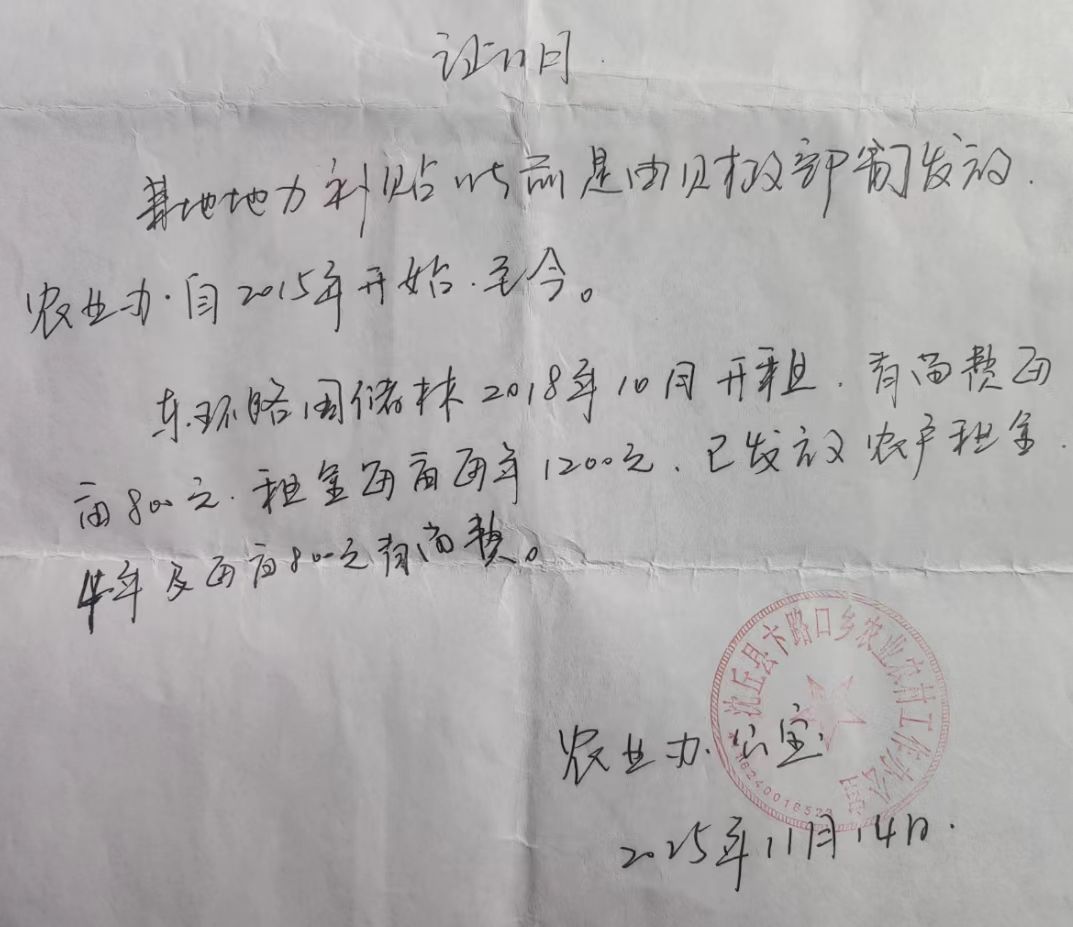 证明
耕地地力补贴以前是由财政部制发放.
农业办.自2015年开始.至今。
东环路国储林2018年10月开租.青苗费每
亩800元.租金每亩每年1200元.已发放农户租金
4年及每亩800元青苗费。
沈丘县卞路口乡农业农村工作办公室
农业办公室
2025年11月14日.